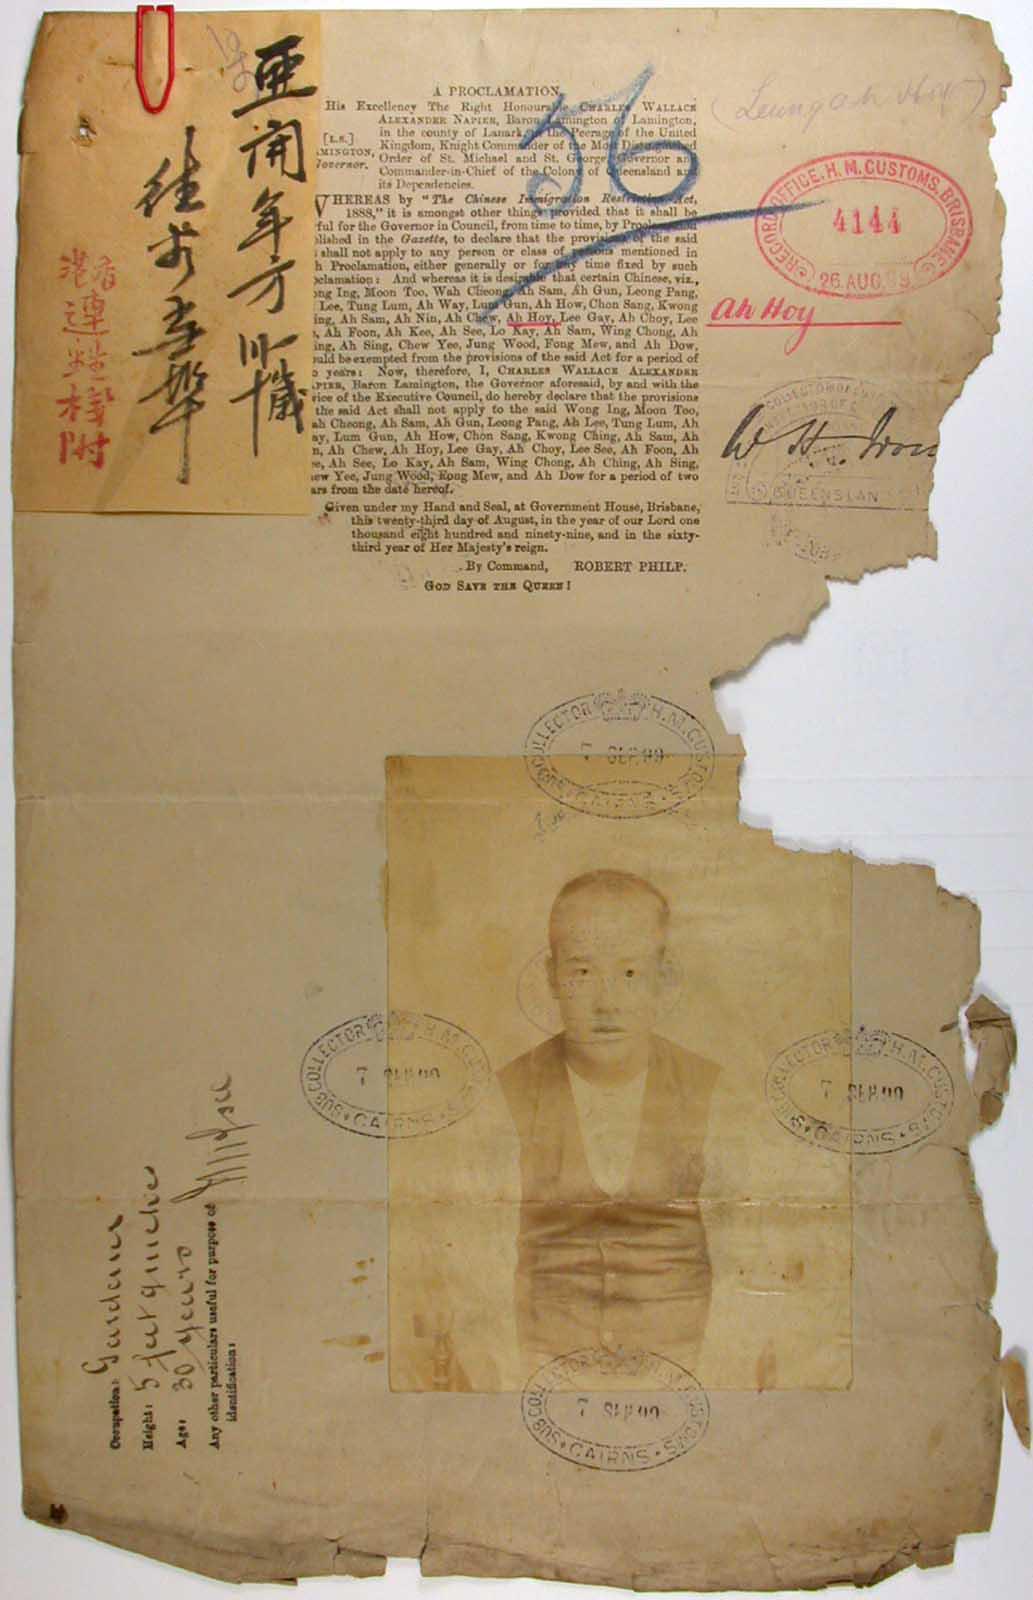 亜開年方卅歲
往
香港
連
棧
附
A PROCLAMATION.
His Excellency The Right Honourable CHARLES WALLACE
ALEXANDER NAPIER, Baron Lamington of Lamington,
in the county of Lanark, in the Peerage of the United
[L.S.] Kingdom, Knight Commander of the Most Distinguished
AMINGTON, Order of St. Michael and St. George, Governor and
Governor. Commander-in-Chief of the Colony of Queensland and
its Dependencies.
WHEREAS by "The Chinese Immigration Restriction Act,
1888," it is amongst other things provided that it shall be
ful for the Governor in Council, from time to time, by Proclamation
blished in the Gazette, to declare that the provisions of the said
shall not apply to any person or class of persons mentioned in
h Proclamation, either generally or for any time fixed by such
clamation: And whereas it is desirable that certain Chinese, viz.,
ong Ing, Moon Too, Wah Cheong, Ah Sam, Ah Gun, Leong Pang,
Lee, Tung Lum, Ah Way, Lum Gun, Ah How, Chon Sang, Kwong
ing, Ah Sam, Ah Nin, Ah Chew, Ah Hoy, Lee Gay, Ah Choy, Lee
, Ah Foon, Ah Kee, Ah See, Lo Kay, Ah Sam, Wing Chong, Ah
ing, Ah Sing, Chew Yee, Jung Wood, Fong Mew, and Ah Dow,
uld be exempted from the provisions of the said Act for a period of
o years: Now, therefore, I, CHARLES WALLACE ALEXANDER
APIER, Baron Lamington, the Governor aforesaid, by and with the
vice of the Executive Council, do hereby declare that the provisions
the said Act shall not apply to the said Wong Ing, Moon Too,
ah Cheong, Ah Sam, Ah Gun, Leong Pang, Ah Lee, Tung Lum, Ah
ay, Lum Gun, Ah How, Chon Sang, Kwong Ching, Ah Sam, Ah
n, Ah Chew, Ah Hoy, Lee Gay, Ah Choy, Lee See, Ah Foon, Ah
ee, Ah See, Lo Kay, Ah Sam, Wing Chong, Ah Ching, Ah Sing,
ew Yee, Jung Wood, Fong Mew, and Ah Dow for a period of two
ars from the date hereof.
Given under my Hand and Seal, at Government House, Brisbane,
this twenty-third day of August, in the year of our Lord one
thousand eight hundred and ninety-nine, and in the sixty-
third year of Her Majesty's reign.
By Command, ROBERT PHILP.
GOD SAVE THE QUEEN!
56
(Leung ah Hoy)
RECORD OFFICE, H.M. CUSTOMS, BRISBANE
4144
26 AUG. 99
Ah Hoy
COLLECTOR OF
QUEENSLAN
W H Irving
SUB COLLECTOR H.M. CUSTOMS
7 SEP. 99
CAIRNS
SUB COLLECTOR H.M. CUSTOMS
7 SEP. 99
CAIRNS
SUB COLLECTOR H.M. CUSTOMS
7 SEP. 99
CAIRNS
SUB COLLECTOR H.M. CUSTOMS
7 SEP. 99
CAIRNS
Occupation: Gardener
Height: 5 feet 9 inches
Age: 30 years
Any other particulars useful for purpose of
identification: